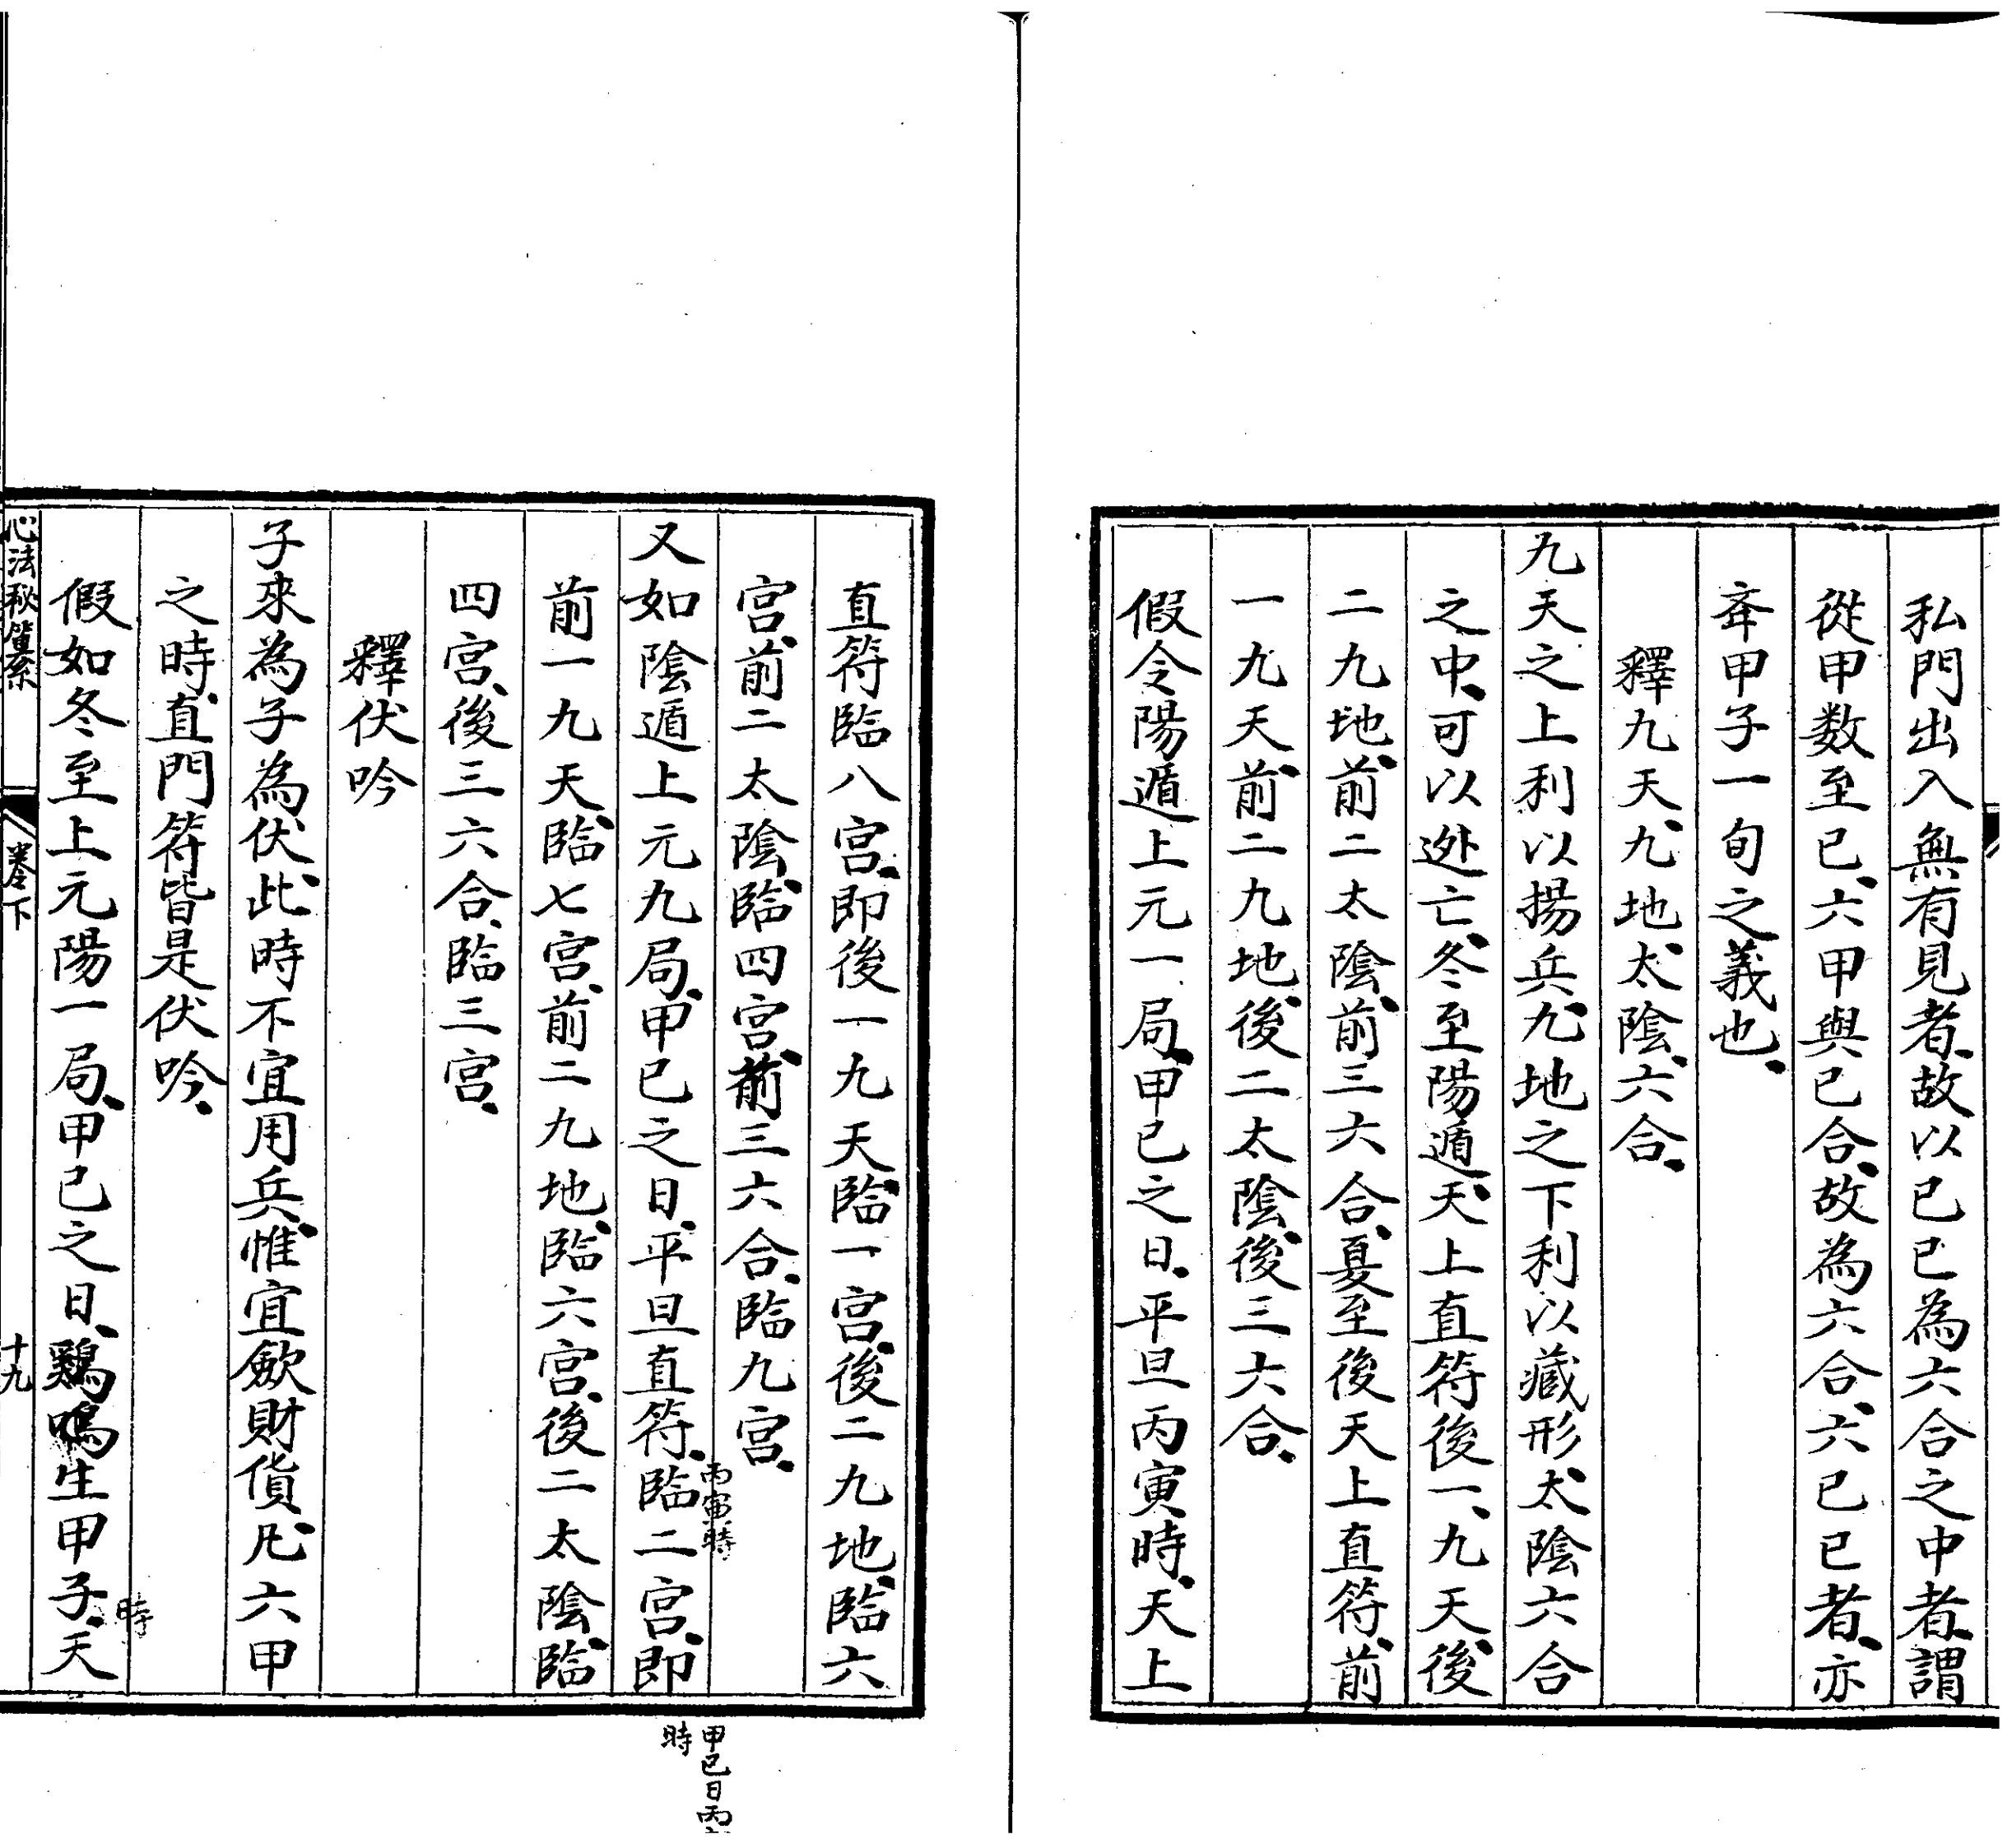 私門出入無有見者、故以己已為六合之中者、謂
從甲数至已、六甲與已合、故為六合、六已已者、亦
在甲子一旬之義也、
釋九天、九地、太陰、六合、
九天之上利以揚兵、九地之下利以藏形、太陰六合
之中、可以逃亡、冬至陽遁、天上直符後一、九天後
二九地、前二太陰、前三六合、夏至後天上直符、前
一九天、前二九地、後二太陰、後三六合、
假令陽遁上元一局、甲已之日、平旦丙寅時、天上
直符臨八宮、即後一九天、臨一宮、後二九地、臨六
宮、前二太陰、臨四宮、前三六合、臨九宮、
又如陰遁上元九局、甲已之日、平旦直符、臨二宮、即
丙寅時
甲已日丙
時
前一九天、臨七宮、前二九地、臨六宮、後二太陰、臨
四宮、後三六合、臨三宮、
釋伏吟
子來為子為伏、此時不宜用兵、惟宜歛財貨、凡六甲
之時、直門符皆是伏吟、
假如冬至上元陽一局、甲已之日、鷄鳴生甲子、天
時
心法秘纂 卷下 十九